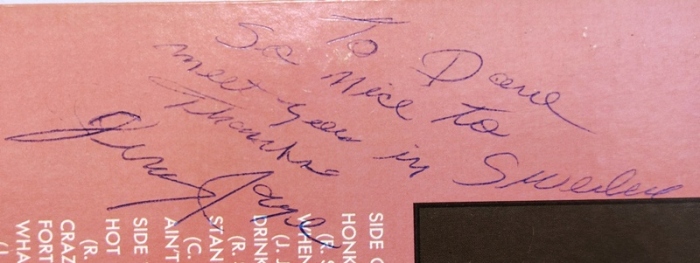 To Dave
So nice to
meet you in Sweden
Thanks
Jerry Jaye
SIDE
HONK
WHEN
(J.
DRINK
(R.
STAN
(C.
AIN'T
SIDE
HOT
(R.
CRAZ
FORT
WHA